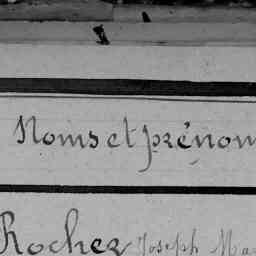 Noms et prénom
Rocher Joseph Ma